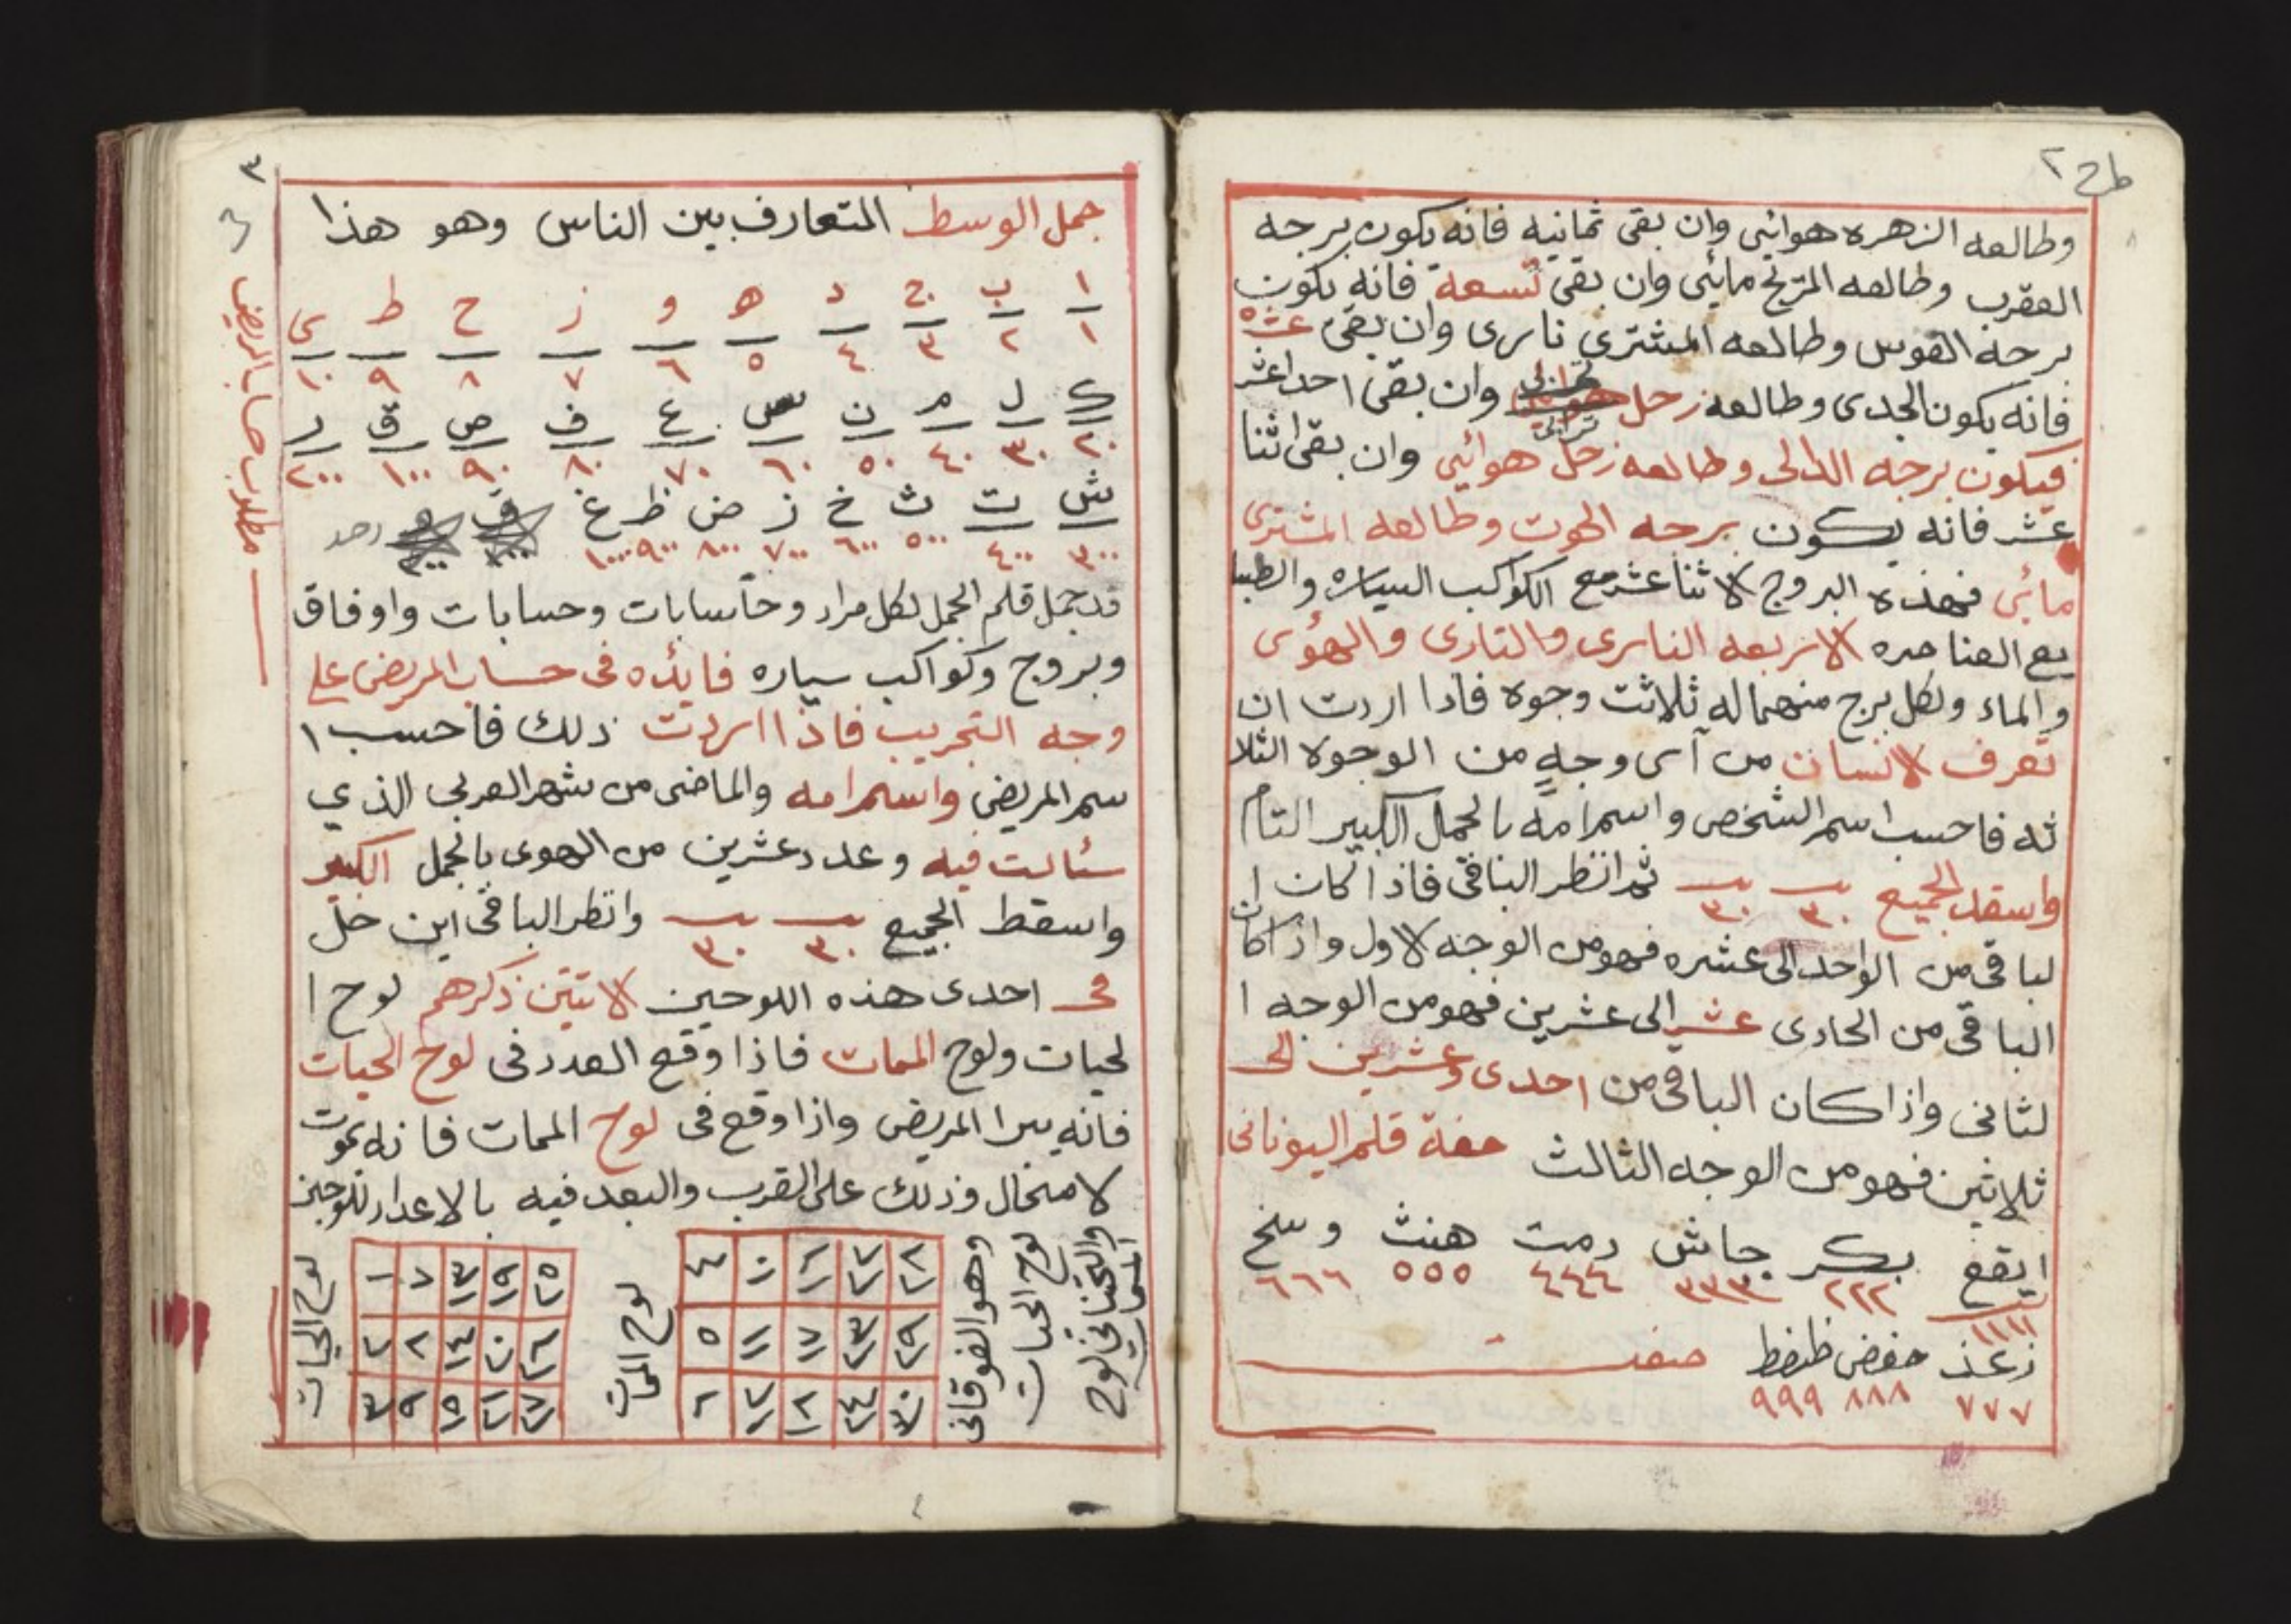 طرح ٢
وطالعه الزهره هوائي وان بقى ثمانيه فانه يكون برجه
العقرب وطالعه المريخ مائي وان بقى تسعة فانه يكون
برجه القوس وطالعه المشترى نارى وان بقى عشره
فانه يكون الجدى وطالعه زحل ترابى وان بقى احد اعشر
فيكون برجه الدالى وطالعه زحل هوائي وان بقى اثنا
عشر فانه يكون برجه الحوت وطالعه المشترى
مائي فهذه البروج الاثنا عشر مع الكواكب السياره والطبا
يع العناصره الاربعه النارى والتارى والهوى
والماء ولكل برج منهما له ثلاثت وجوه فاذا اردت ان
تعرف الانسان من آى وجه من الوجوه الثلا
ثه فاحسب اسم الشخص واسم امه بالجمل الكبير التام
واسقط الجميع ٣٠ ٣٠ ثم انظر الباقى فاذا كان ا
لباقى من الواحد الى عشره فهو من الوجه الاول واذا كان
الباقى من الحادى عشر الى عشرين فهو من الوجه ا
لثانى واذا كان الباقى من احدى وعشرين الى
ثلاثين فهو من الوجه الثالث صفة قلم اليونانى
ايقغ بكر جاش دمت هنث وسخ
١١١١ ٢٢٢ ٣٣٣ ٤٤٤ ٥٥٥ ٦٦٦
زعذ حفض طصظ
٧٧٧ ٨٨٨ ٩٩٩
٣
جمل الوسط المتعارف بين الناس وهو هذا
ا ب ج د ه و ز ح ط ى
١ ٢ ٣ ٤ ٥ ٦ ٧ ٨ ٩ ١٠
ك ل م ن س ع ف ص ق ر
٢٠ ٣٠ ٤٠ ٥٠ ٦٠ ٧٠ ٨٠ ٩٠ ١٠٠ ٢٠٠
ش ت ث خ ز ض ظ غ
٣٠٠ ٤٠٠ ٥٠٠ ٦٠٠ ٧٠٠ ٨٠٠ ٩٠٠ ١٠٠٠
قد جمل قلم الجمل لكل مراد وحاسابات وحسابات واوفاق
وبروج وكواكب سياره فائده فى حساب المريض على
وجه التجريب فاذا اردت ذلك فاحسب ا
سم المريض واسم امه والماضى من شهر العربى الذي
سئالت فيه وعدد عشرين من الهوى بالجمل الكبير
واسقط الجميع ٣٠ ٣٠ وانظر الباقى اين حل
فى احدى هذه اللوحين الاتيتين ذكرهم لوح ا
لحيات ولوح الممات فاذا وقع العدد فى لوح الحيات
فانه يبرا المريض واذا وقع فى لوح الممات فانه يموت
لا محال وذلك على القرب والبعد فيه بالاعداد للوحين
وهو الفوقانى
لوح الحيات
والتحتانى لوح
الممات
٤ ١٠ ١٦ ٢٢ ٢٨
٥ ١١ ١٧ ٢٣ ٢٩
٦ ١٢ ١٨ ٢٤ ٣٠
لوح الممات
١ ٧ ١٣ ١٩ ٢٥
٢ ٨ ١٤ ٢٠ ٢٦
٣ ٩ ١٥ ٢١ ٢٧
لوح الحيات
مطلاب حساب المريض